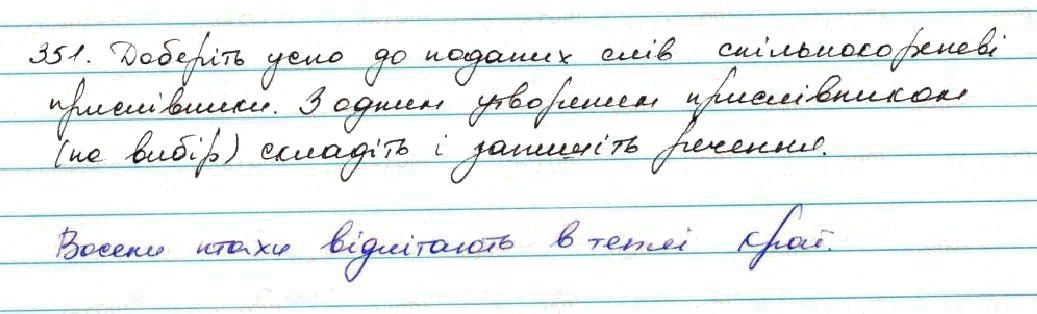 351. Доберіть усно до поданих слів спільнокореневі
прислівники. З одним утвореним прислівником
(на вибір) складіть і запишіть речення.
Восени птахи відлітають в теплі краї.